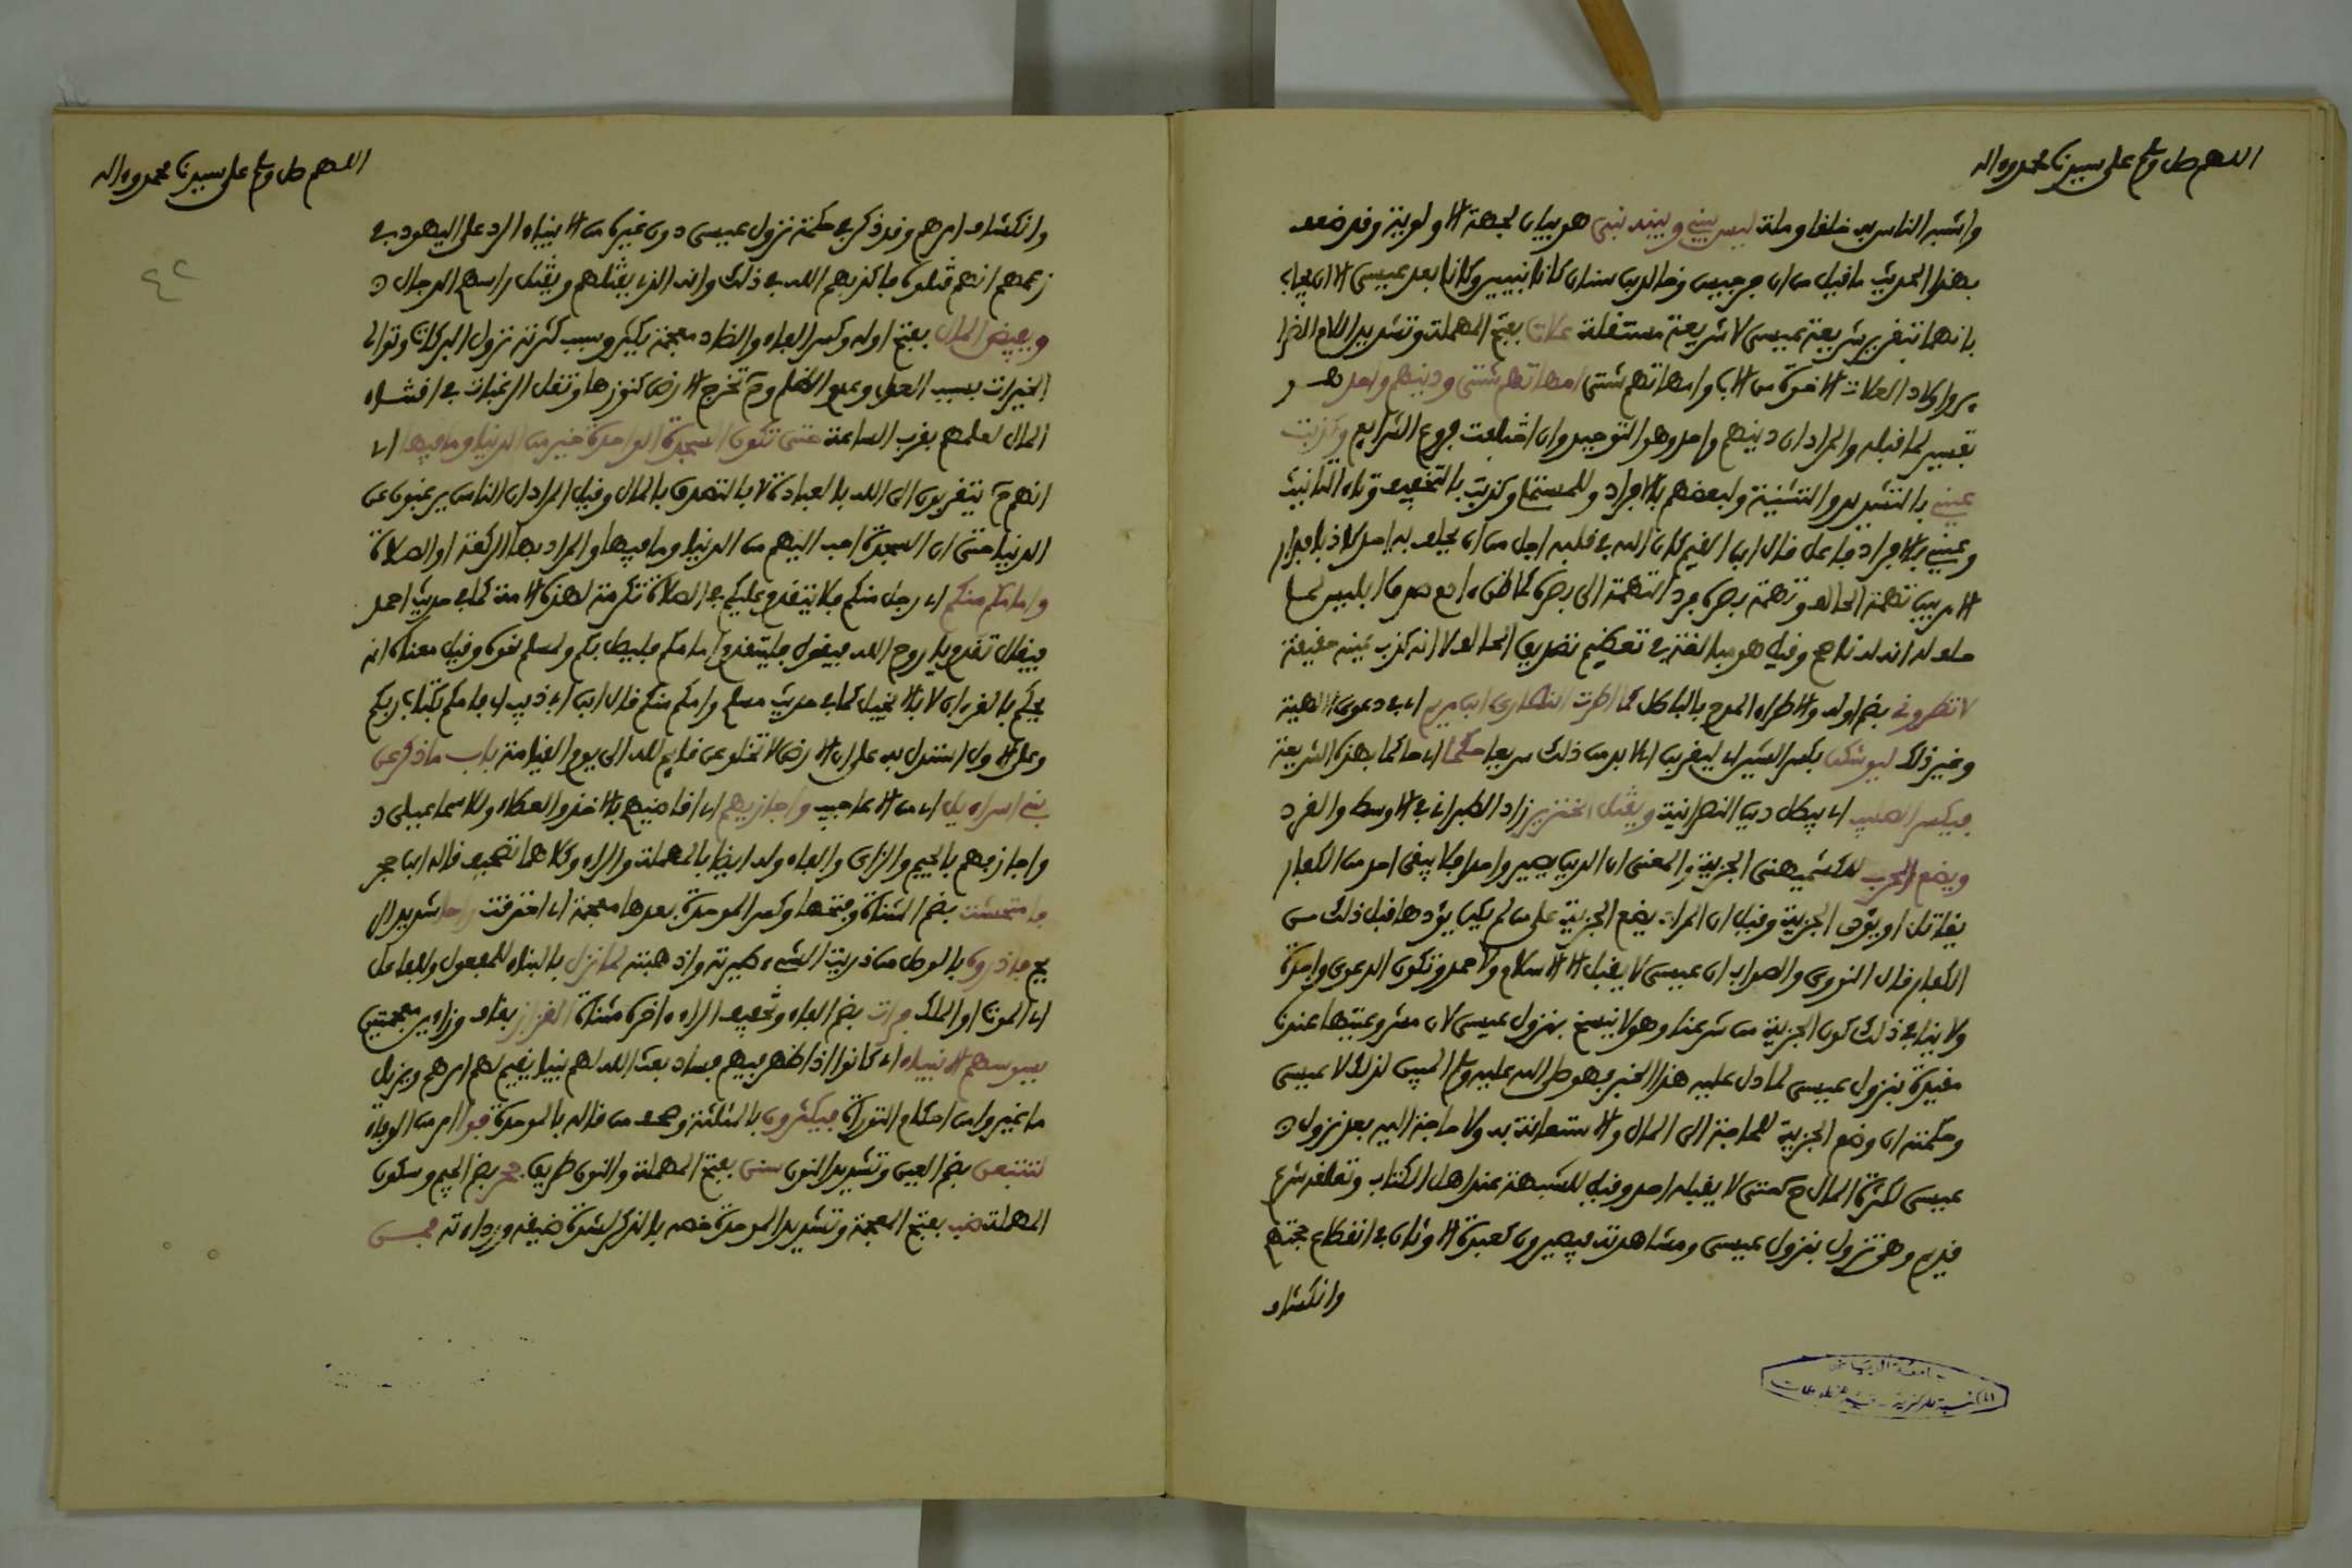 اللهم صل وسلم على سيدنا محمد وءاله
واشبه الناس به خلقا وملة ليس بيني وبينه نبي هو بيان لجهة الاولوية وقد ضعف
بهذا الحديث ما قيل من ان جرجيس وخالد بن سنان كانا نبيين وكانا بعد عيسى الا ان يجاب
بانهما بتقرير شريعة عيسى لا شريعة مستقلة علات بفتح المهملة وتشديد اللام الضرا
ير واولاد العلات الاخوة من الاب وامهاتهم شتى امهاتهم شتى ودينهم واحد هو
تفسير لما قبله والمراد ان دينهم واحد وهو التوحيد وان اختلفت فروع الشرايع وكذبت
عيني بالتشديد والتثنية ولبعضهم بالافراد وللمستملي وكذبت بالتخفيف وتاء التانيث
وعيني بالافراد فاعل قال ابن القيم كان الله في قلبه اجل من ان يحلف به احد كاذبا فدار
الامر بين تهمة الحالف وتهمة بصره فرد التهمة الى بصره كما ظن ءادم صدق ابليس لما
حلف له انه له ناصح وقيل هو مبالغة في تعظيم تصديق الحالف لا انه كذب عينه حقيقة
لا تطروني بضم اوله والاطراء المدح بالباطل كما اطرت النصارى ابن مريم اي في دعوى الالهية
وغير ذلك ليوشكن بكسر الشين اي ليقربن اي لا بد من ذلك سريعا حكما اي حاكما بهذه الشريعة
فيكسر الصليب اي يبطل دين النصرانية ويقتل الخنزير زاد الطبراني في الاوسط والقرد
ويضع الحرب للكشميهني الجزية والمعنى ان الدين يصير واحدا فلا يبقى احد من الكفار
يقاتل او يؤدى الجزية وقيل ان المراد يضع الجزية على من لم يكن يؤدها قبل ذلك من
الكفار قال النووي والصواب ان عيسى لا يقبل الا الاسلام ولاحمد وتكون الدعوى واحدة
ولا ينافي ذلك كون الجزية من شرعنا وهو لا ينسخ بنزول عيسى لان مشروعيتها عندنا
مقيدة بنزول عيسى لما دل عليه هذا الخبر فهو صلى الله عليه وسلم المبين لذلك لا عيسى
وحكمته ان وضع الجزية للحاجة الى المال والاستعانة به ولا حاجة اليه بعد نزول
عيسى لكثرة المال ح حتى لا يقبله احد وقيل للشبهة عند اهل الكتاب وتعلقه بشرع
قديم وهي تزول بنزول عيسى ومشاهدته فيصيرون كعبدة الاوثان في انقطاع حجتهم
وانكشاف
جامعة الرياض
المكتبة المركزية - قسم المخطوطات
اللهم صل وسلم على سيدنا محمد وءاله
٤٢
وانكشاف امرهم وقد ذكر في حكمة نزول عيسى دون غيره من الانبياء الرد على اليهود في
زعمهم انهم قتلوه فاكذبهم الله في ذلك وانه الذي يقتلهم ويقتل راسهم الدجال
ويفيض المال بفتح اوله وكسر الفاء والضاد معجمة يكثر وسبب كثرته نزول البركات وتوالي
الخيرات بسبب العدل وعدم الظلم وح تخرج الارض كنوزها وتقل الرغبات في اقتناء
المال لعلمهم بقرب الساعة حتى تكون السجدة الواحدة خير من الدنيا وما فيها اي
انهم ح يتقربون الى الله بالعبادة لا بالتصدق بالمال وقيل المراد ان الناس يرغبون عن
الدنيا حتى ان السجدة احب اليهم من الدنيا وما فيها والمراد بها الركعة او الصلاة
وامامكم منكم اي رجل منكم فلا يتقدم عليكم في الصلاة تكرمة لهذه الامة كما في حديث احمد
فيقال تقدم يا روح الله فيقول ليتقدم امامكم فليصل بكم ولمسلم نحوه وقيل معناه انه
يحكم بالقرءان لا بالانجيل كما في حديث مسلم وامكم منكم قال ابن ابي ذيب اي فامكم بكتاب ربكم
وعلى الاول استدل به على ان الارض لا تخلو عن قايم لله الى يوم القيامة باب ما ذكر عن
بني اسراءيل اي من الاعاجيب واجازيهم اي اقاضيهم بالاخذ والعطاء وللاسماعيلي
واجازفهم بالجيم والزاى والفاء وله ايضا بالمهملة والراء وكلاهما تصحيف قاله ابن حجر
فامتحشت بضم المثناة وفتحها وكسر الموحدة بعدها معجمة اي احترقت راحا شديد الر
يح فاذروه بالوصل من ذريت الشيء صيرته واذهبته لما نزل بالبناء للمفعول وللفاعل
اي الموت او الملك فرات بضم الفاء وتخفيف الراء ءاخره مثناة القزاز بقاف وزاءين معجمتين
تسوسهم الانبياء اي كانوا اذا ظهر فيهم فساد بعث الله لهم نبيا يقيم لهم امرهم ويزيل
ما غيروا من احكام التوراة فيكثرون بالمثلثة وصحف من قاله بالموحدة فوا امر من الوفاء
لتتبعن بضم العين وتشديد النون سنن بفتح المهملة والنون طريق جحر بضم الجيم وسكون
المهملة ضب بفتح المعجمة وتشديد الموحدة خصه بالذكر لشدة ضيقه ورداءته مجسى